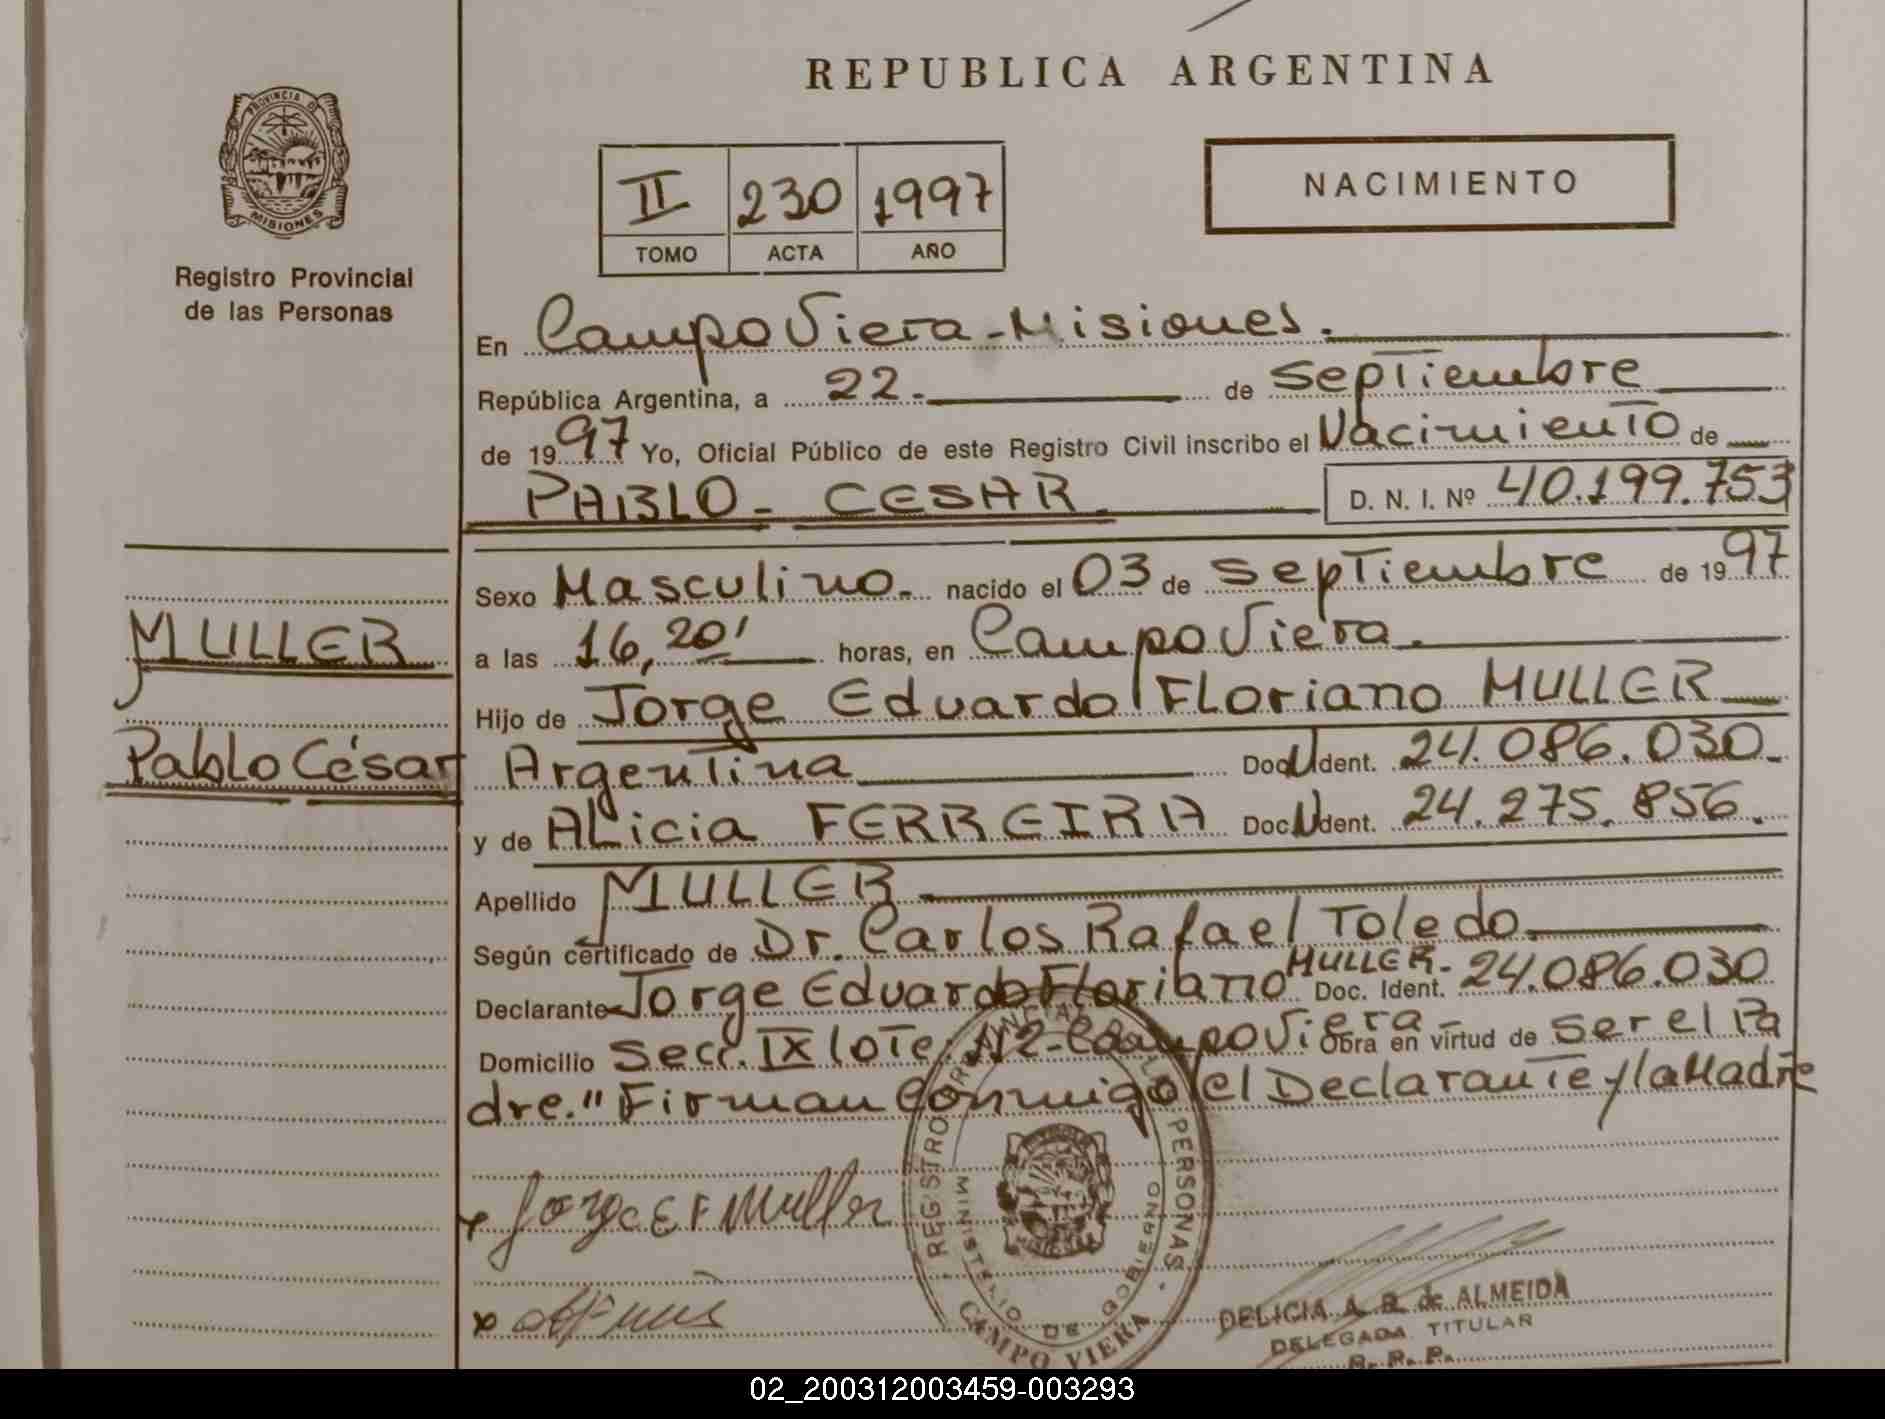 REPUBLICA ARGENTINA
PROVINCIA D
MISIONES
Registro Provincial
de las Personas
II 230 1997
TOMO ACTA AÑO
NACIMIENTO
En Campo Viera - Misiones.
República Argentina, a 22. de Septiembre
de 1997 Yo, Oficial Público de este Registro Civil inscribo el Nacimiento de
PABLO - CESAR. D. N. I. Nº 40.199.753
Sexo Masculino. nacido el 03 de Septiembre de 1997
MULLER
a las 16,20' horas, en Campo Viera.
Hijo de Jorge Eduardo Floriano MULLER
Pablo César
Argentina Doc. U Ident. 24.086.030.-
y de Alicia FERREIRA Doc. U Ident. 24.275.856.
Apellido MULLER
Según certificado de Dr. Carlos Rafael Toledo.
Declarante Jorge Eduardo Floriano MULLER- Doc. Ident. 24.086.030
Domicilio Secc. IX lote: 112 - Campo Viera - Obra en virtud de ser el Pa
dre." Firman Conmigo el Declarante y la Madre
Jorge E F Muller
REGISTRO PROVINCIAL DE LAS PERSONAS
MINISTERIO DE GOBIERNO
CAMPO VIERA
DELICIA A. R. de ALMEIDA
DELEGADA TITULAR
R. R. P.
02_200312003459-003293